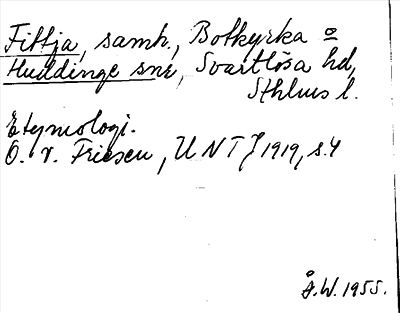 Fittja, samh., Botkyrka o
Huddinge snr, Svartlösa hd,
Sthlms l.
Etymologi.
O. v. Friesen, UNT 1919, s. 4
Å.W. 1955.